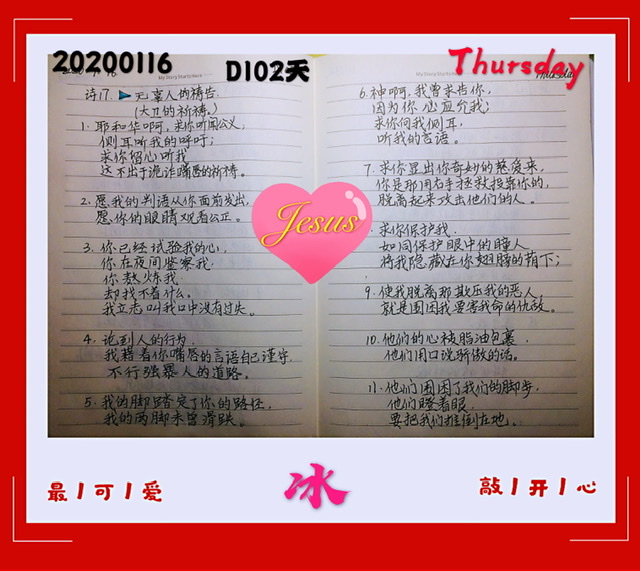 20200116
D102天
Thursday
My Story Starts Here
诗17. 无辜人的祷告.
(大卫的祈祷.)
1. 耶和华啊, 求你听闻公义;
侧耳听我的呼吁;
求你留心听我
这不出于诡诈嘴唇的祈祷.
2. 愿我的判语从你面前发出,
愿你的眼睛观看公正.
3. 你已经试验我的心,
你在夜间鉴察我.
你熬炼我
却找不着什么.
我立志叫我口中没有过失.
4. 论到人的行为,
我藉着你嘴唇的言语自己谨守
不行强暴人的道路.
5. 我的脚踏定了你的路径,
我的两脚未曾滑跌.
6. 神啊, 我曾求告你,
因为你必应允我;
求你向我侧耳,
听我的言语.
7. 求你显出你奇妙的慈爱来,
你是那用右手拯救投靠你的,
脱离起来攻击他们的人.
求你保护我.
如同保护眼中的瞳人
将我隐藏在你翅膀的荫下;
9. 使我脱离那欺压我的恶人
就是围困我要害我命的仇敌.
10. 他们的心被脂油包裹.
他们用口说骄傲的话.
11. 他们围困了我们的脚步,
他们瞪着眼
要把我们推倒在地.
Jesus
最 / 可 / 爱
冰
敲 / 开 / 心